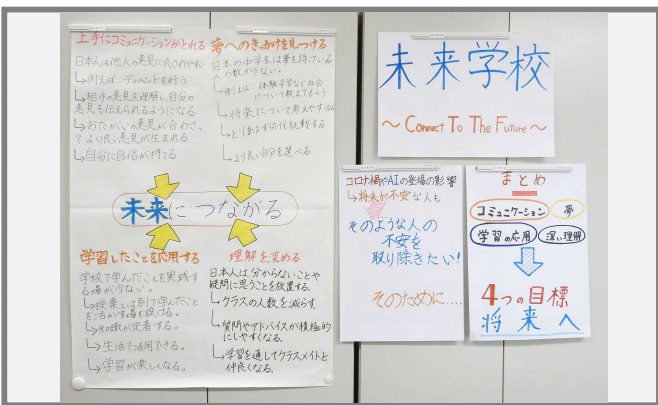 上手にコミュニケーションがとれる
日本人は他人の意見に流されやすい
↳例えば ディベートを行う
↳相手の意見を理解し自分の
意見も伝えられるようになる
↳おたがいの意見が合わさっ
てより良い意見が生まれる
↳自分に自信が持てる
夢へのきっかけを見つける
日本の中学生は夢を持っている
人の数が少ない。
↳例えば、体験学習など社会
について教えてもらう
↳将来について考えやすくなる
↳とりあえず何でも挑戦する
↳より良い自分を選べる
未来につながる
学習したことを応用する
学校で学んだことを実践す
る場が少ない。
↳授業とは別で学んだこと
を活かす場を設ける。
↳知識が定着する。
↳生活で活用できる。
↳学習が楽しくなる。
理解を深める
日本人は分からないことや
疑問に思うことを放置する。
↳クラスの人数を減らす。
↳質問やアドバイスが積極的
にしやすくなる。
↳学習を通してクラスメイトと
仲良くなる。
未来学校
～Connect To The Future～
コロナ禍やAIの登場の影響
↳将来が不安な人も
そのような人の
不安を
取り除きたい!
そのために....
まとめ
コミュニケーション
夢
学習の応用
深い理解
4つの目標
将来へ